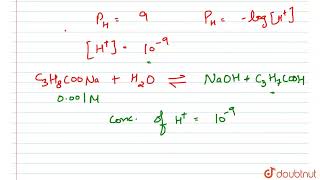 PH = 9 PH = -log[H+]
[H+] = 10^-9
C3H8COONa + H2O ⇌ NaOH + C3H7COOH
0.001M
Conc. of H+ = 10^-9
doubtnut